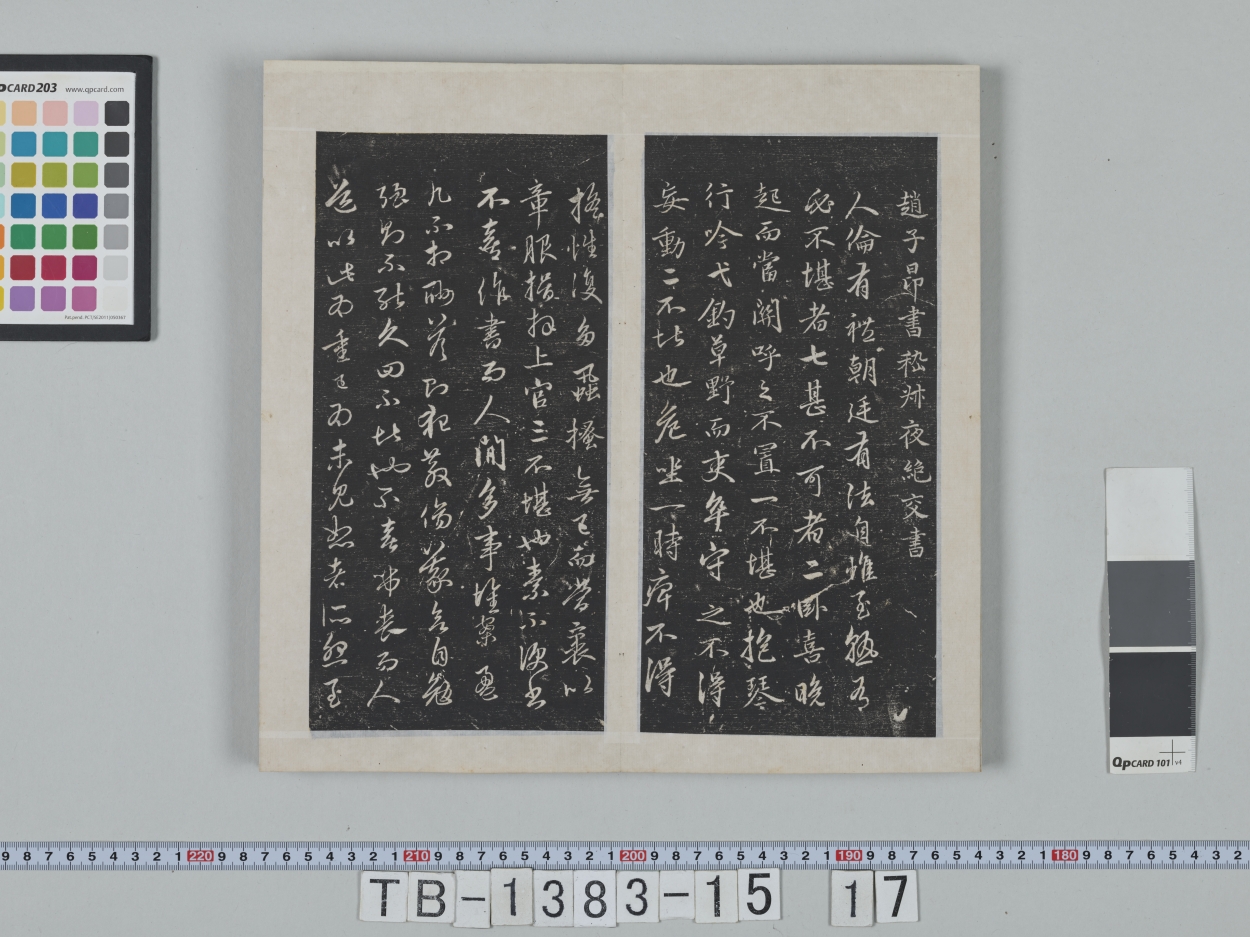 趙子昂書嵇叔夜絕交書
人倫有禮朝廷有法自惟至熟有
必不堪者七甚不可者二臥喜晚
起而當關呼之不置一不堪也抱琴
行吟弋釣草野而吏卒守之不得
妄動二不堪也危坐一時痺不得
搖性復多蝨搔無已而當裹以
章服揖拜上官三不堪也素不便書
不喜作書而人間多事堆案盈
几不相酬答則犯教傷義欲自勉
強則不能久四不堪也不喜弔喪而人
道以此為重已為未見恕者所怨至
QPCARD 203 www.qpcard.com
QPCARD 101 v4
9 8 7 6 5 4 3 2 1 220 9 8 7 6 5 4 3 2 1 210 9 8 7 6 5 4 3 2 1 200 9 8 7 6 5 4 3 2 1 190 9 8 7 6 5 4 3 2 1 180 9 8 7 6 5 4 3 2
TB-1383-15 17